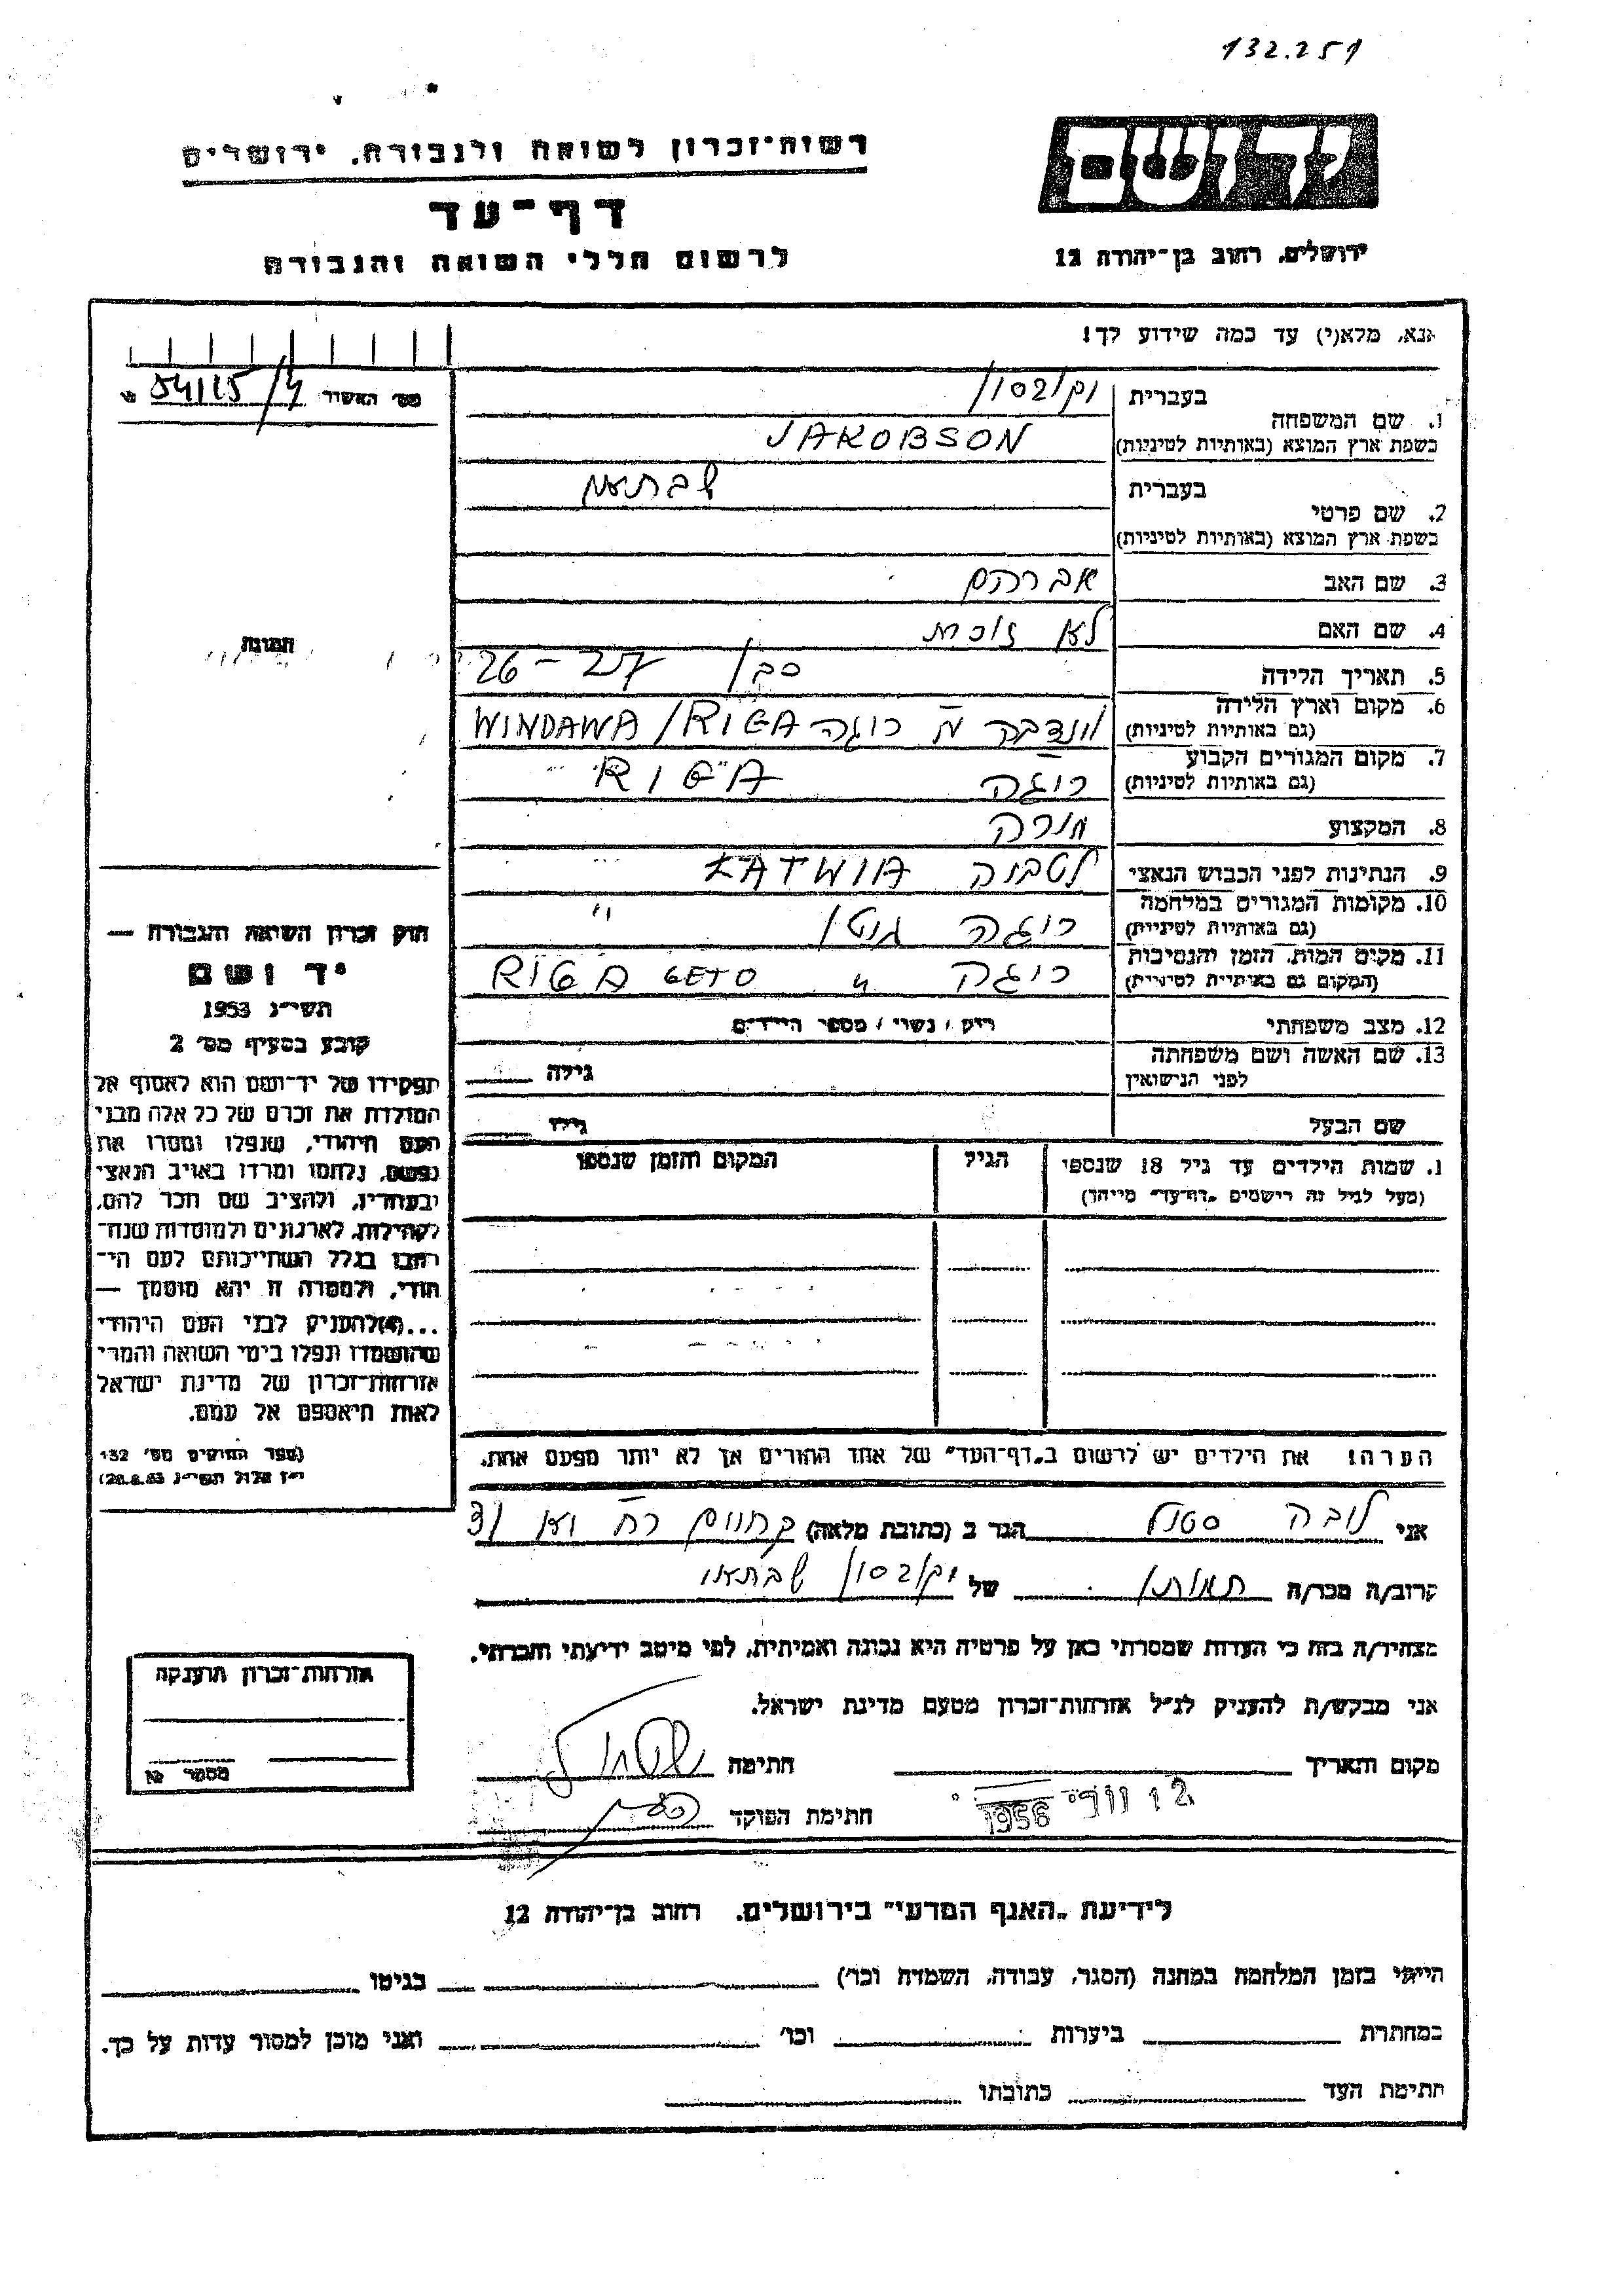 132.251
רשות־זכרון לשואה ולגבורה, ירושלים
דף־עד
לרשום חללי השואה והגבורה
ידושם
ירושלים, רחוב בן־יהודה 12
אנא, מלא(י) עד כמה שידוע לך!
מס׳ האשור 54115/4
1. שם המשפחה
בעברית יקובסון
בשפת ארץ המוצא (באותיות לטיניות) JAKOBSON
2. שם פרטי
בעברית שבתאי
בשפת ארץ המוצא (באותיות לטיניות)
3. שם האב אברהם
4. שם האם לא זוכרת
5. תאריך הלידה כבן 26-27
6. מקום וארץ הלידה
(גם באותיות לטיניות) ונדבה ריגה WINDAWA/RIGA
7. מקום המגורים הקבוע
(גם באותיות לטיניות) ריגה RIGA
8. המקצוע מורה
9. הנתינות לפני הכבוש הנאצי לטביה ŁATWIA
10. מקומות המגורים במלחמה
(גם באותיות לטיניות) ריגה גיטו "
11. מקום המות, הזמן והנסיבות
(המקום גם באותיות לטיניות) ריגה " RIGA GETO
12. מצב משפחתי רוק / נשוי / מספר הילדים
13. שם האשה ושם משפחתה
לפני הנישואין גילה
שם הבעל גילו
תמונה
חוק זכרון השואה והגבורה —
יד ושם
תשי״ג 1953
קובע בסעיף מס׳ 2
תפקידו של יד־ושם הוא לאסוף אל
המולדת את זכרם של כל אלה מבני
העם היהודי, שנפלו ומסרו את
נפשם, נלחמו ומרדו באויב הנאצי
ובעוזריו, ולהציב שם וזכר להם,
לקהילות, לארגונים ולמוסדות שנח־
רבו בגלל השתייכותם לעם הי־
הודי, ולמטרה זו יהא מוסמך —
...(4)להעניק לבני העם היהודי
שהושמדו ונפלו בימי השואה והמרי
אזרחות־זכרון של מדינת ישראל
לאות היאספם אל עמם.
(ספר החוקים מס׳ 132
י״ז אלול תשי״ג 28.8.53)
1. שמות הילדים עד גיל 18 שנספו
(מעל לגיל זה רושמים „דף־עד״ מיוחד)
הגיל
המקום והזמן שנספו
הערה! את הילדים יש לרשום ב„דף־העד״ של אחד ההורים אך לא יותר מפעם אחת.
אני לובה הגר ב (כתובת מלאה)
קרוב/ה מכר/ה של יקובסון שבתאי
מצהיר/ה בזה כי העדות שמסרתי כאן על פרטיה היא נכונה ואמיתית, לפי מיטב ידיעתי והכרתי.
אני מבקש/ת להעניק לנ״ל אזרחות־זכרון מטעם מדינת ישראל.
מקום ותאריך חתימה
1956
חתימת הפוקד
אזרחות־זכרון הוענקה
מספר №
לידיעת „האגף המדעי״ בירושלים, רחוב בן־יהודה 12
הייתי בזמן המלחמה במחנה (הסגר, עבודה, השמדה וכו׳) בגיטו
במחתרת ביערות וכו׳ ואני מוכן למסור עדות על כך.
חתימת העד כתובתו